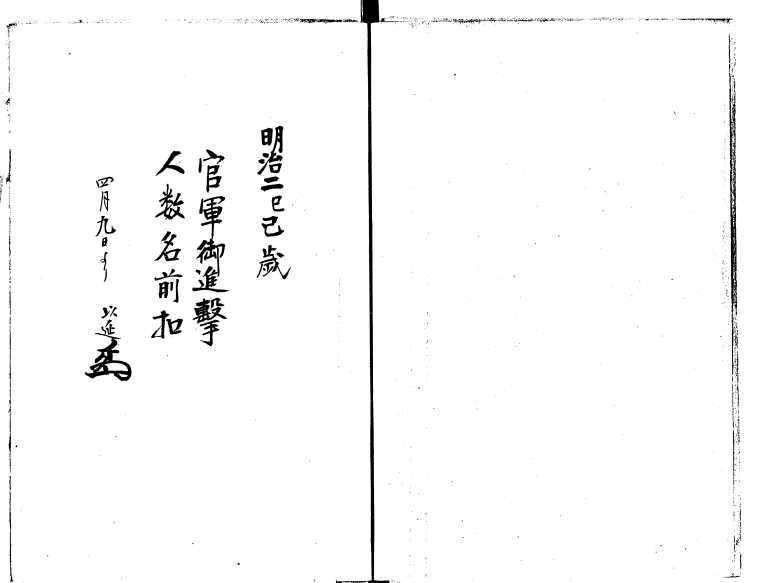 明治二己巳歳
官軍御進撃
人数名前扣
四月九日より
以延